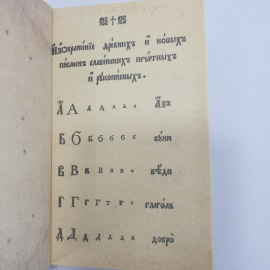 Изображенїе древнихъ и новыхъ
писменъ славенскихъ печатныхъ
и рꙋкописныхъ.
А А а а а а азъ
Б Б б б б б бꙋки
В В в в в в вѣди
Г Г г г г г глаголь
Д Д д д д д добро